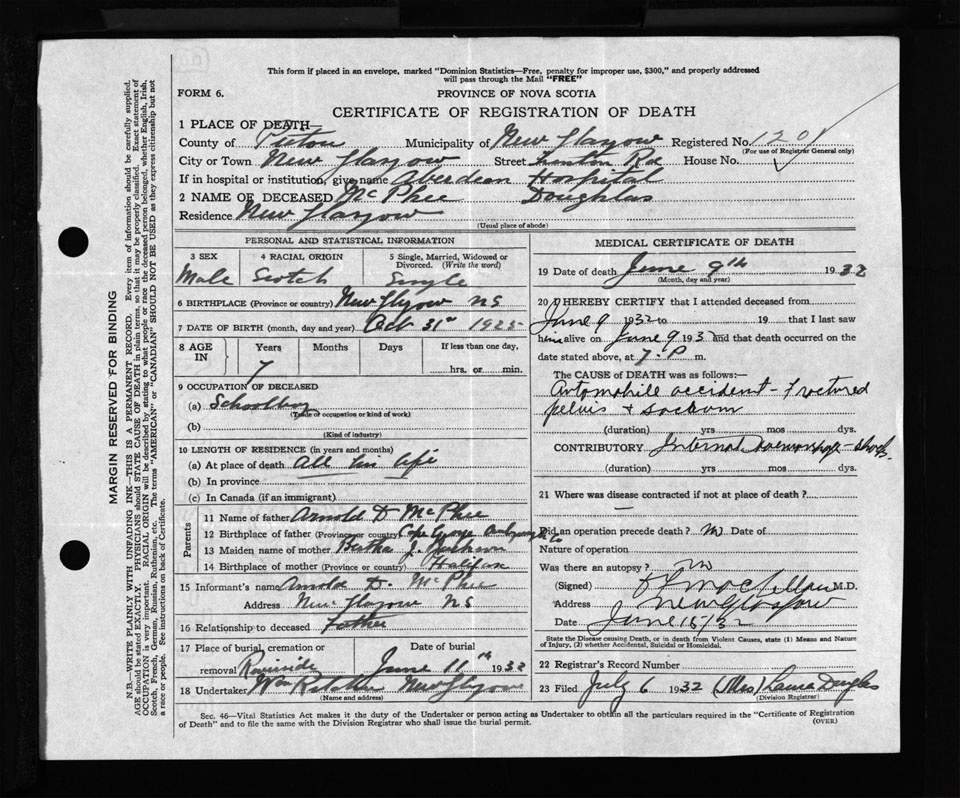 This form if placed in an envelope, marked "Dominion Statistics—Free, penalty for improper use, $300," and properly addressed
will pass through the Mail "FREE"
FORM 6.
PROVINCE OF NOVA SCOTIA
CERTIFICATE OF REGISTRATION OF DEATH
1 PLACE OF DEATH—
County of Pictou Municipality of New Glasgow Registered No. 1201
(For use of Registrar General only)
City or Town New Glasgow Street House No.
If in hospital or institution, give name Aberdean Hospital
2 NAME OF DECEASED McPhee Doughlas
Residence New Glasgow
(Usual place of abode)
PERSONAL AND STATISTICAL INFORMATION
3 SEX 4 RACIAL ORIGIN 5 Single, Married, Widowed or Divorced. (Write the word)
Male Scotch Single
6 BIRTHPLACE (Province or country) New Glasgow NS
7 DATE OF BIRTH (month, day and year) Oct 31st 1925
8 AGE IN Years Months Days If less than one day.
7
hrs. or min.
9 OCCUPATION OF DECEASED
(a) Schoolboy
(Trade or occupation or kind of work)
(b)
(Kind of industry)
10 LENGTH OF RESIDENCE (in years and months)
(a) At place of death All his life
(b) In province
(c) In Canada (if an immigrant)
Parents
11 Name of father Arnold D McPhee
12 Birthplace of father (Province or country) Cape George Antigonish Co
13 Maiden name of mother Bertha J.
14 Birthplace of mother (Province or country) Halifax
15 Informant's name Arnold D. McPhee
Address New Glasgow NS
16 Relationship to deceased Father
17 Place of burial, cremation or removal Riverside
Date of burial
June 11th 1932
18 Undertaker Wm New Glasgow
(Name and address)
MEDICAL CERTIFICATE OF DEATH
19 Date of death June 9th 1932
(Month, day and year)
20 I HEREBY CERTIFY that I attended deceased from
June 9 1932 to 19 that I last saw
him alive on June 9 1932 and that death occurred on the
date stated above, at 7 P m.
The CAUSE of DEATH was as follows:—
Automobile accident - Fractured
pelvis + sacrum
(duration) yrs mos dys.
CONTRIBUTORY Internal haemorrhage - shock.
(duration) yrs mos dys.
21 Where was disease contracted if not at place of death?
—
Did an operation precede death? no Date of
Nature of operation
Was there an autopsy? no
(Signed) MacLellan M.D.
Address New Glasgow
Date June 15/32
State the Disease causing Death, or in death from Violent Causes, state (1) Means and Nature
of Injury, (2) whether Accidental, Suicidal or Homicidal.
22 Registrar's Record Number
23 Filed July 6 1932 (Mrs) Laura Douglas
(Division Registrar)
Sec. 46—Vital Statistics Act makes it the duty of the Undertaker or person acting as Undertaker to obtain all the particulars required in the "Certificate of Registration
of Death" and to file the same with the Division Registrar who shall issue the burial permit.
(OVER)
MARGIN RESERVED FOR BINDING
N.B.—WRITE PLAINLY WITH UNFADING INK—THIS IS A PERMANENT RECORD. Every item of information should be carefully supplied.
AGE should be stated EXACTLY. PHYSICIANS should STATE CAUSE OF DEATH in plain terms, so that it may be properly classified. Exact statement of
OCCUPATION is very important. RACIAL ORIGIN will be described by stating to what people or race the deceased person belonged, whether English, Irish,
Scotch, French, German, Russian, Ruthenian, etc. The terms "AMERICAN" or "CANADIAN" SHOULD NOT BE USED as they express citizenship but not
a race or people. See instructions on back of Certificate.